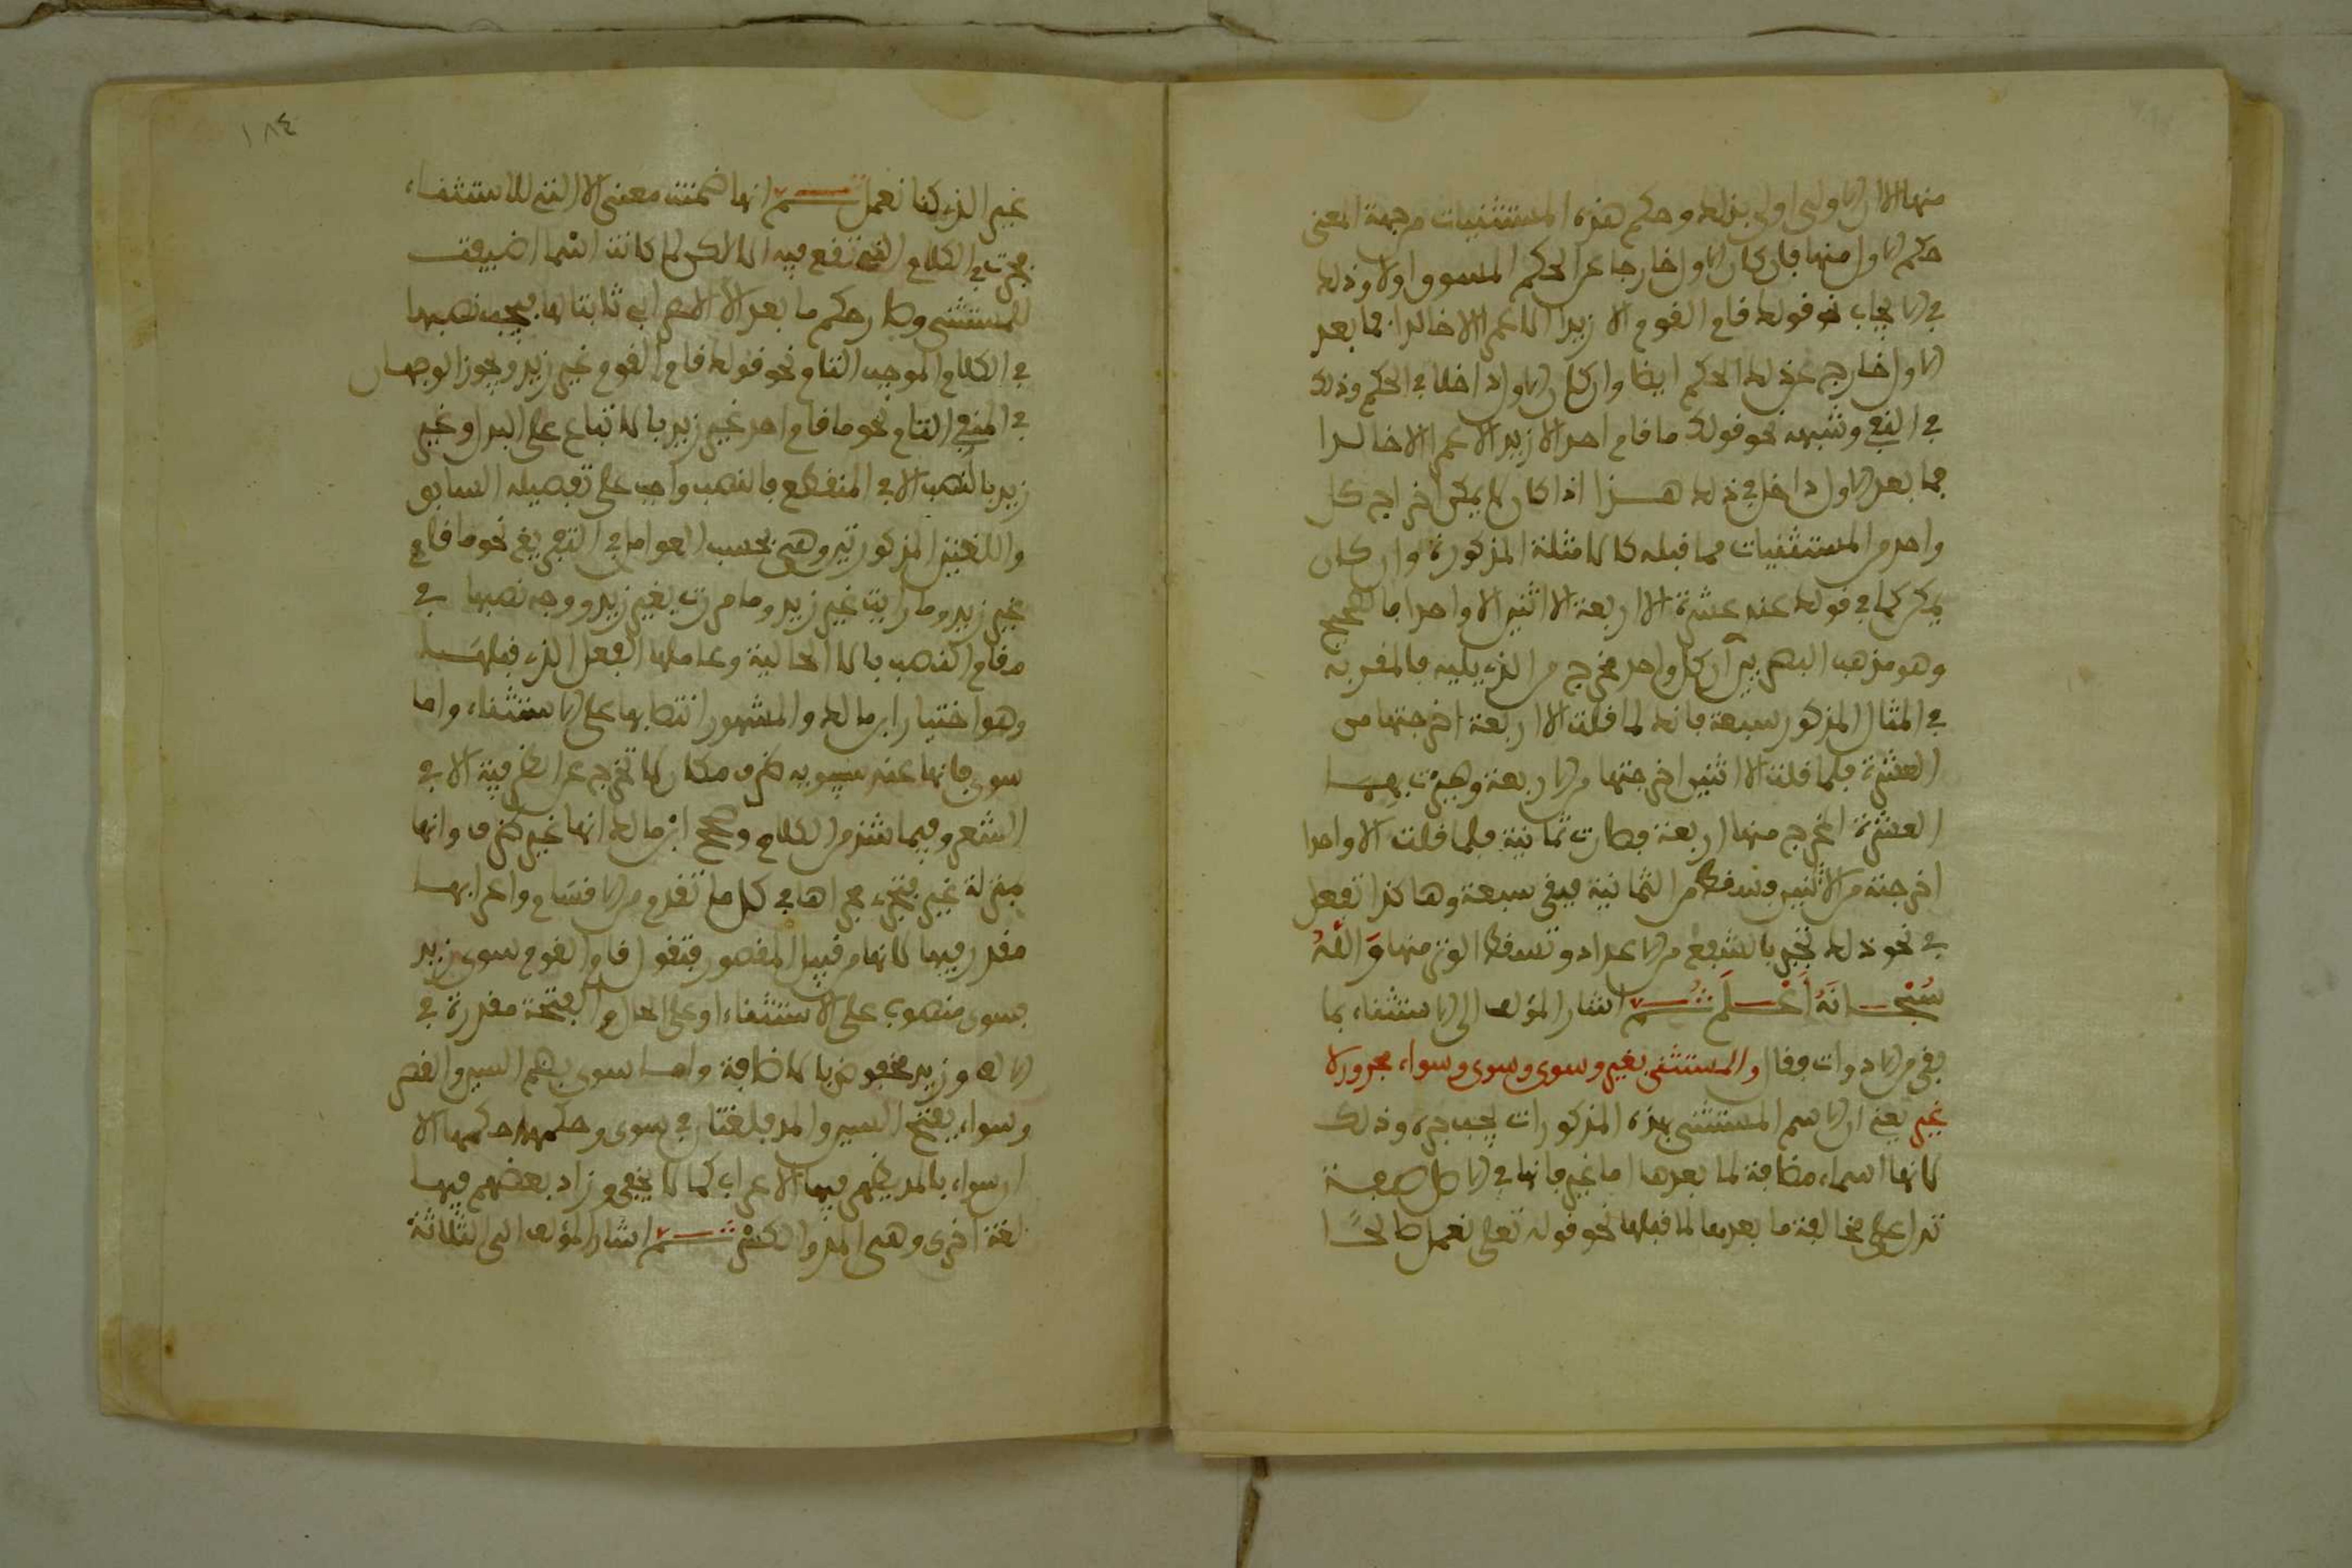 منها الا ان الاول اولى بذلك وحكم هذه المستثنيات من جهة المعنى
حكم الاول منها فان كان الاول خارجا عن الحكم المسوق اولا وذلك
في الايجاب نحو قولك قام القوم الا زيدا الا عمرا الا خالدا فما بعد
الاول خارج عن ذلك الحكم ايضا وان كان الاول داخلا في الحكم وذلك
في النفي وشبهه نحو قولك ما قام احد الا زيد الا عمرا الا خالدا
فما بعد الاول داخل في ذلك هذا اذا كان لا يمكن اخراج كل
واحد من المستثنيات مما قبله كالامثلة المذكورة وان كان
يمكن كما في قولك عندي عشرة الا اربعة الا اثنين الا واحدا فالصحيح
وهو مذهب البصريين ان كل واحد مخرج من الذي يليه فالمقر به
في المثال المذكور سبعة فانك لما قلت الا اربعة اخرجتها من
العشرة فلما قلت الا اثنين اخرجتها من الاربعة وجبرت بهما
العشرة المخرج منها اربعة فصارت ثمانية فلما قلت الا واحدا
اخرجته من الاثنين وسقط من الثمانية فبقي سبعة وهاكذا تفعل
في نحو ذلك تجبر بالشفع من الاعداد وتسقط الوتر منها وَاللهُ
سُبْحَانَهُ أَعْلَم ثُم اشار المؤلف الى الاستثناء بما
بقي من الادوات فقال والمستثنى بغير وسوى وسوى وسواء مجرور لا
غير يعني ان الاسم المستثنى بهذه المذكورات يجب جره وذلك
لانها اسماء مضافة لما بعدها اما غير فانها في الاصل صفة
تدل على مخالفة ما بعدها لما قبلها نحو قوله تعلى نعمل صالحًا
١٨٤
غير الذي كنا نعمل ثم انها ضمنت معنى الا التي للاستثناء
فجرت في الكلام الذي تقع فيه الا لاكن لما كانت اسْما اضيفت
للمستثنى وصار حكم ما بعد الا الاعرابي ثابتا لها فيجب نصبها
في الكلام الموجب التام نحو قولك قام القوم غير زيد ويجوز الوجهان
في المنفي التام نحو ما قام احد غير زيد بالاتباع على البدل وغير
زيد بالنصب الا في المنقطع فالنصب واجب على تفصيله السابق
واللغتين المذكورتين وهي بحسب العوامل في التفريغ نحو ما قام
غير زيد وما رايت غير زيد وما مررت بغير زيد ووجه نصبها في
مقام النصب بالا الحالية وعاملها الفعل الذي قبلهَا
وهو اختيار ابن مالك والمشهور انتصابها على الاستثناء واما
سوى فانها عند سيبويه ظرف مكان لا تخرج عن الظرفية الا في
الشعر وفيما شذ من الكلام وصحح ابن مالك انها غير ظرف وانها
بمنزلة غير فتجري مجراها في كل ما تقدم من الاقسام واعرابها
مقدر فيها لانها من قبيل المقصور فتقول قام القوم سوى زيد
فسوى منصوب على الاستثناء او على الحال والفتحة مقدرة في
الالف وزيد مخفوض بالاضافة واما سوى بضم السين والقصر
وسواء بفتح السين والمد فلغتان في سوى وحكمهما حكمها الا
ان سواء بالمد يظهر فيها الاعراب كما لا يخفى وزاد بعضهم فيها
لغة اخرى وهي المد والكسْر ثم اشار المؤلف الى الثلاثة